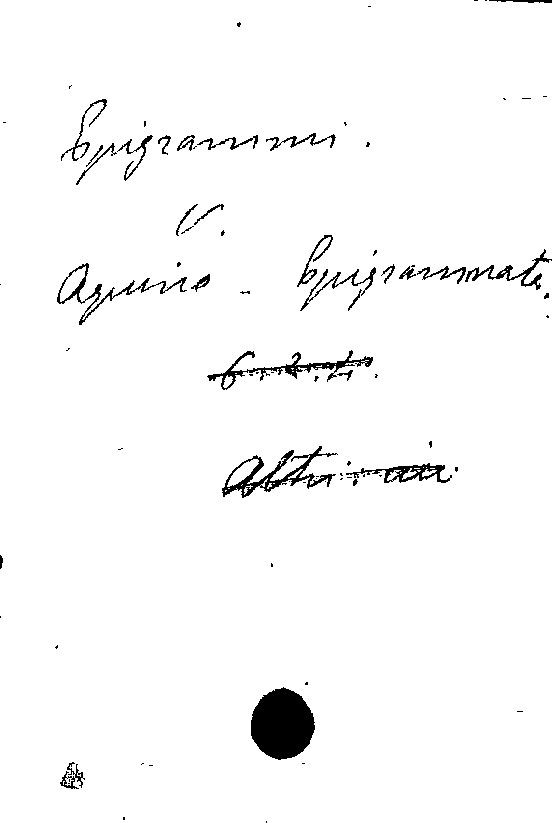 Epigrammi.
V.
Aquino - Epigrammata.
6.2.4.
Altri: